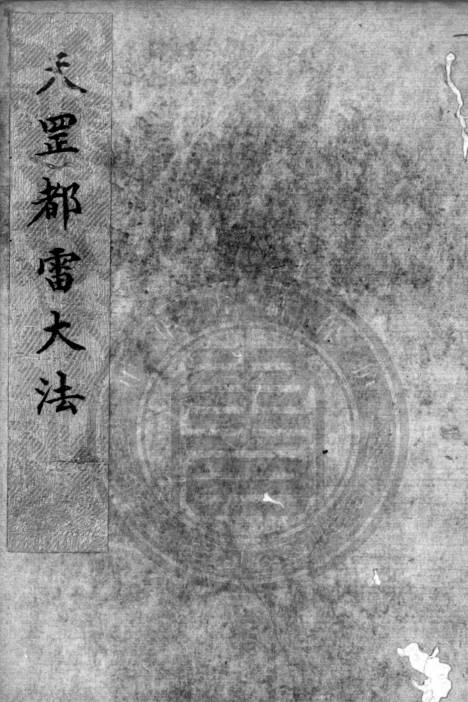 天罡都雷大法